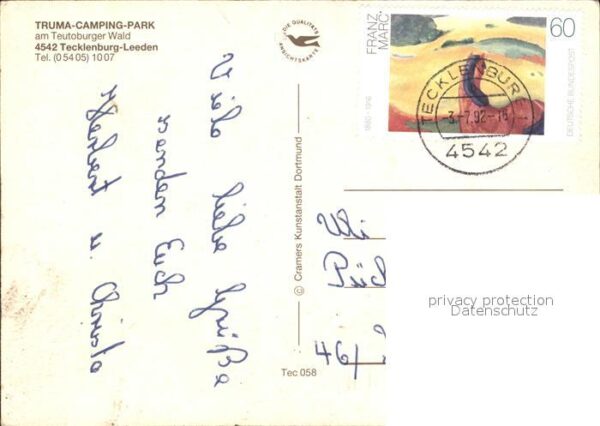 TRUMA-CAMPING-PARK
am Teutoburger Wald
4542 Tecklenburg-Leeden
Tel. (0 54 05) 10 07
DIE QUALITÄTS
ANSICHTSKARTE
Viele liebe Grüße
senden Euch
Herbert u. Christa
© Cramers Kunstanstalt Dortmund
Tec 058
FRANZ
MARC
1880 - 1916
60
DEUTSCHE BUNDESPOST
TECKLENBURG
-3.-7.92-16
4542
46/
privacy protection
Datenschutz